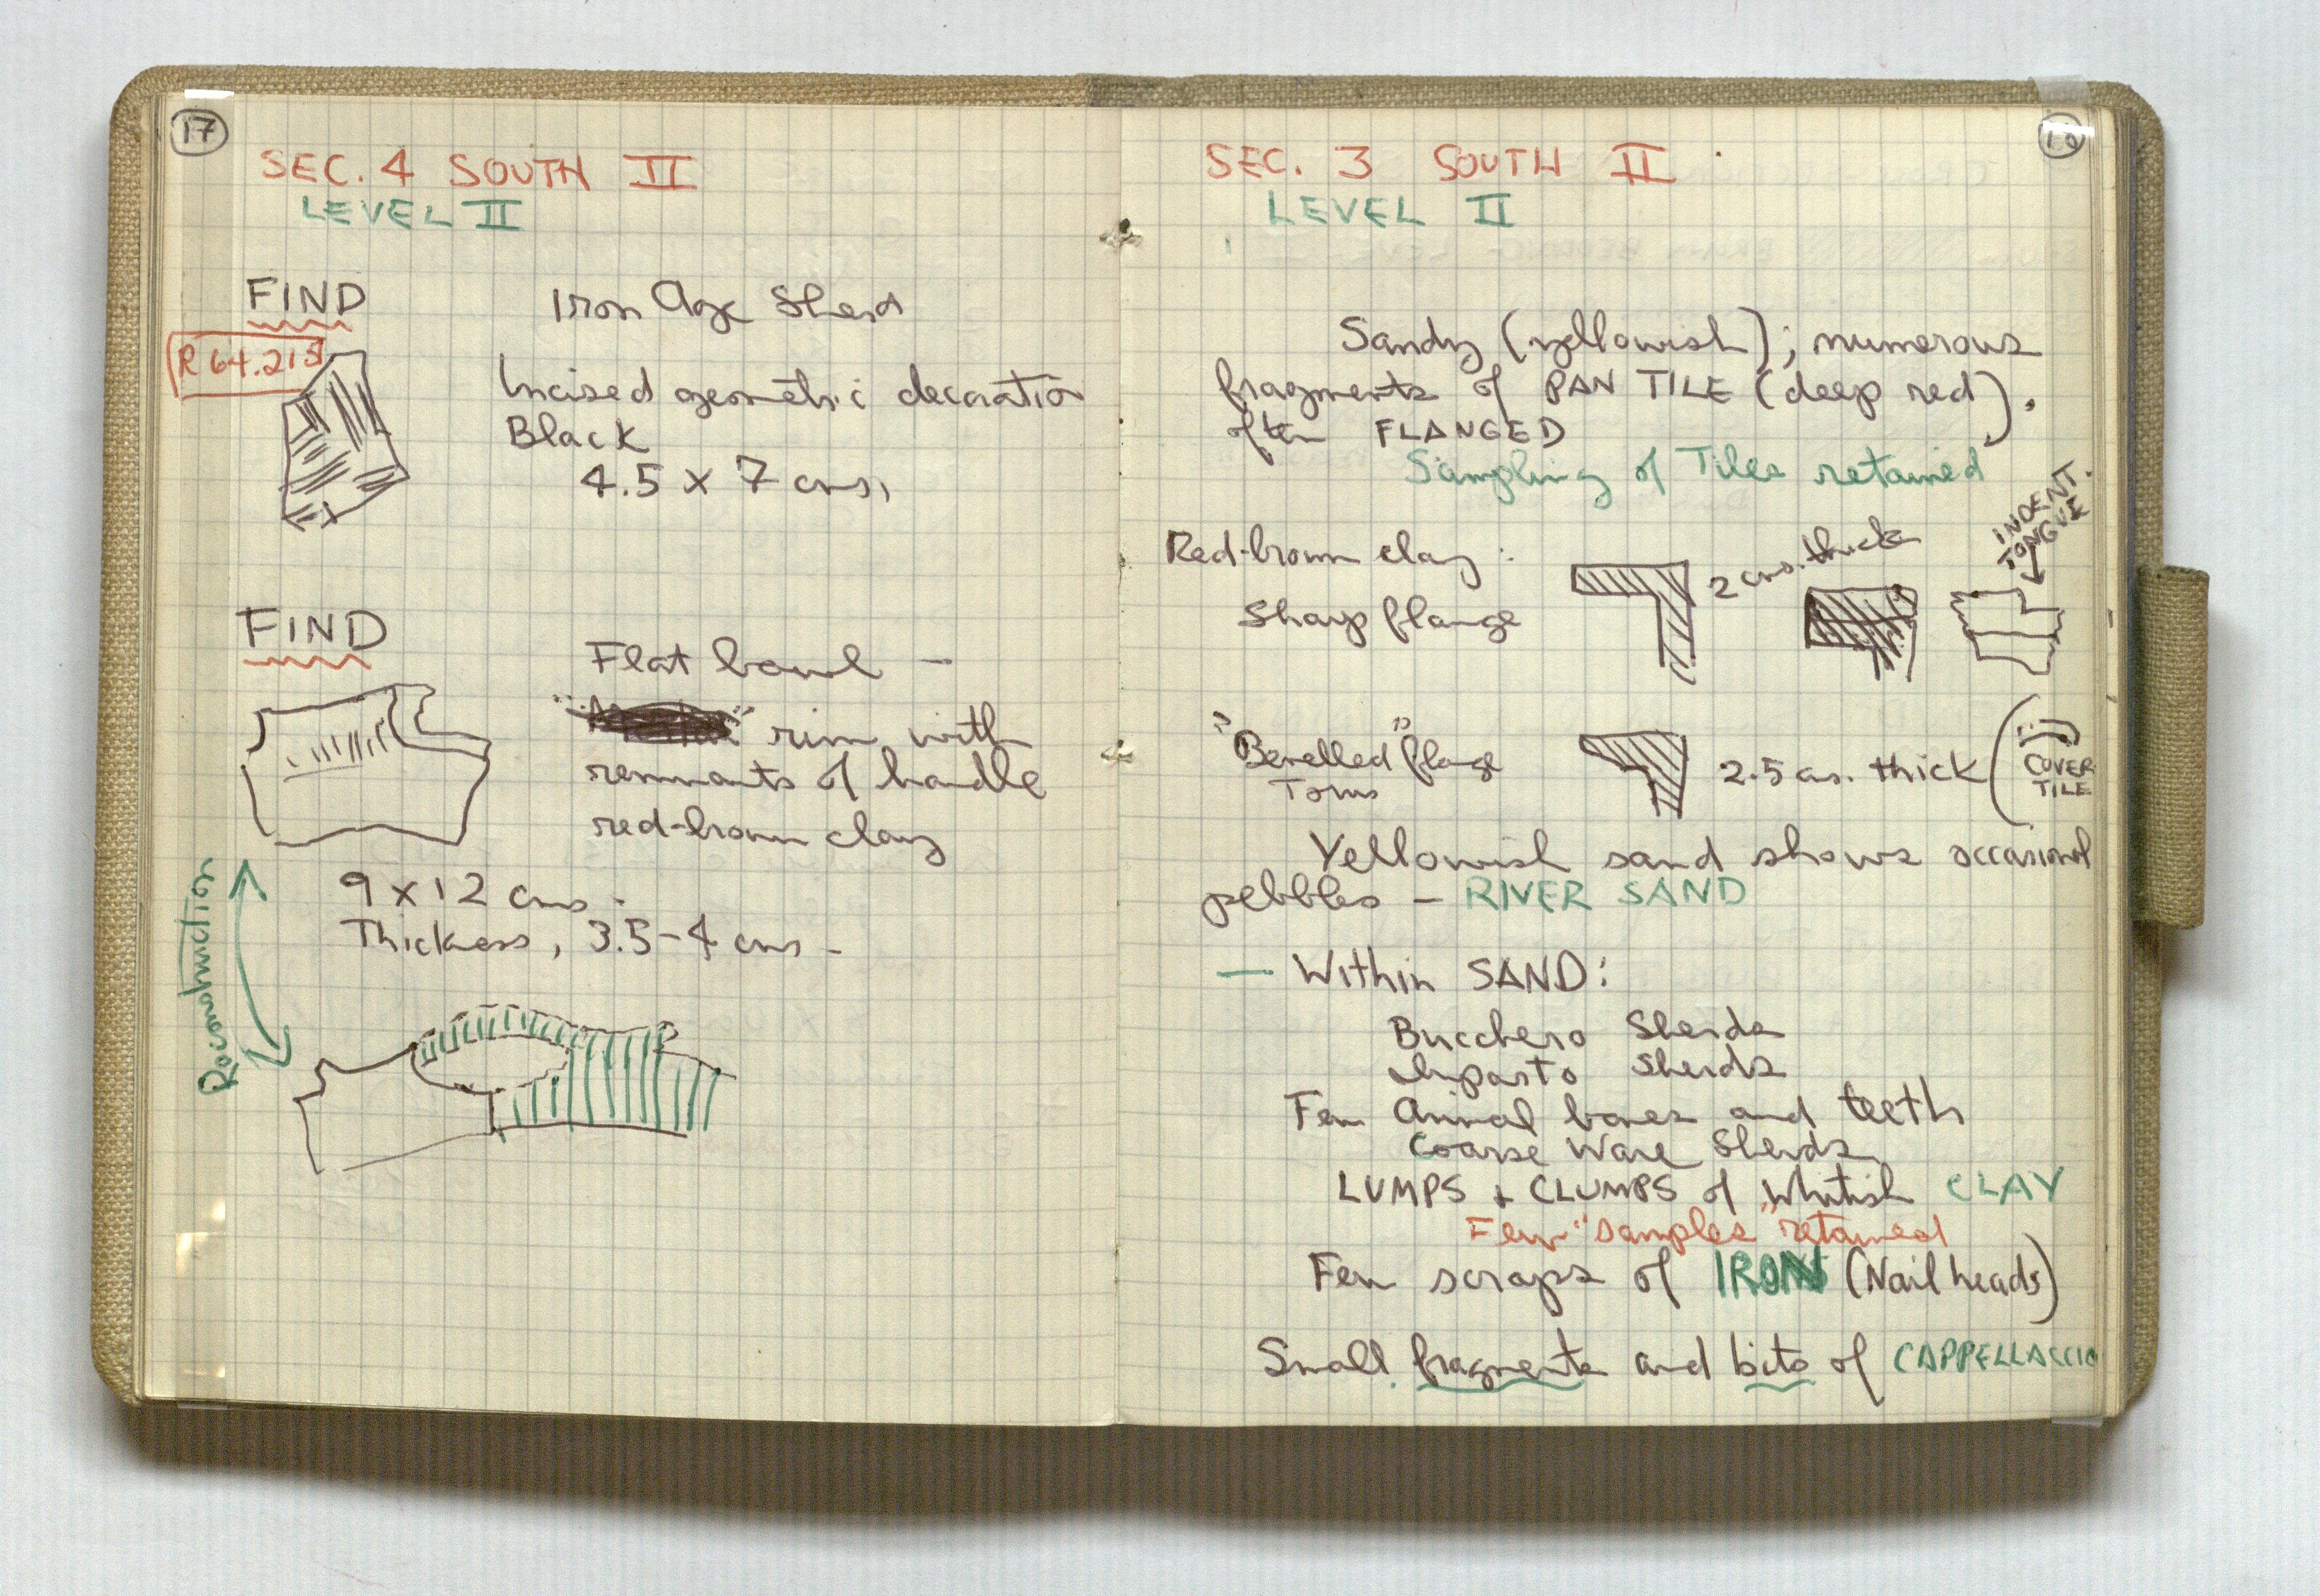 17
SEC. 4 SOUTH II
LEVEL II
FIND
Iron Age Sherd
R 64.215
Incised geometric decoration
Black
4.5 x 7 cms.
FIND
Flat bowl –
rim with
remnants of handle
red-brown clay
9 x 12 cms.
Thickness, 3.5-4 cms –
Reconstruction
SEC. 3 SOUTH II
LEVEL II
Sandy (yellowish); numerous
fragments of PAN TILE (deep red).
often FLANGED
Sampling of Tiles retained
INDENT.
TONGUE
Red-brown clay:
Sharp flange
2 cms. thick
"Bevelled" flange
2.5 cms. thick
COVER
TILE
Yellowish sand shows occasional
pebbles – RIVER SAND
– Within SAND:
Bucchero Sherds
Impasto Sherds
Few Animal bones and teeth
Coarse Ware Sherds
LUMPS + CLUMPS of Whitish CLAY
Few "samples" retained
Few scraps of IRON (Nail heads)
Small fragments and bits of CAPPELLACCIO